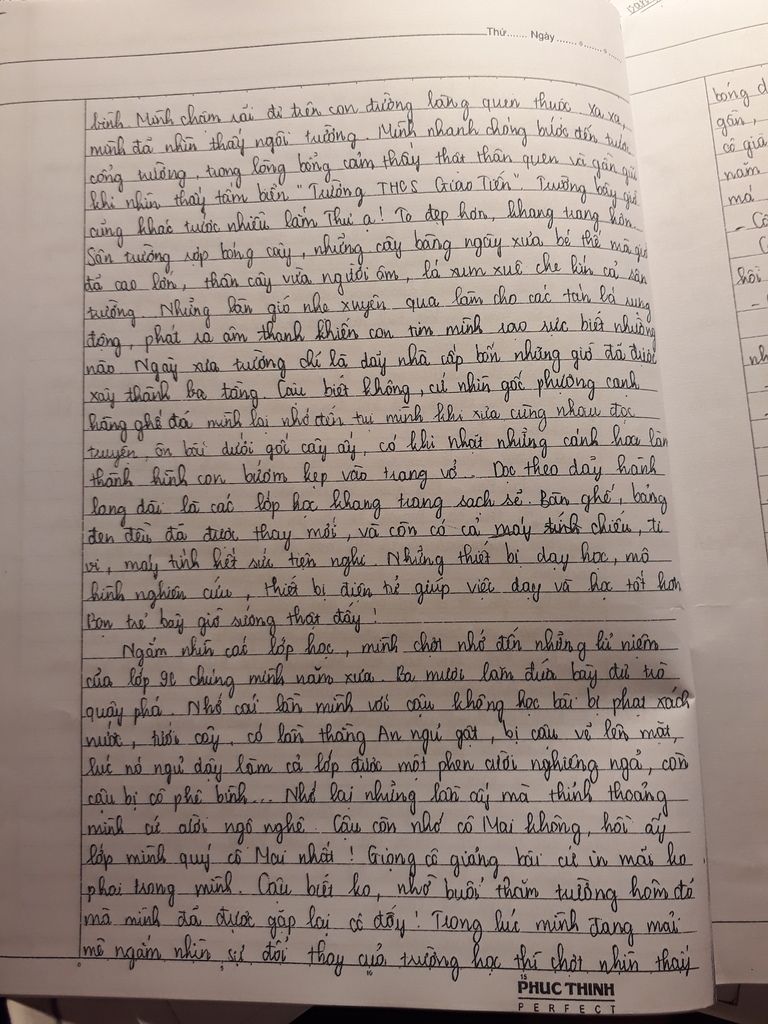 Thứ....... Ngày.......
bình. Mình chậm rãi đi trên con đường làng quen thuộc. Xa xa,
mình đã nhìn thấy ngôi trường. Mình nhanh chóng bước đến trước
cổng trường, trong lòng bỗng cảm thấy thật thân quen và gần gũi
khi nhìn thấy tấm biển "Trường THCS Giao Tiến". Trường bây giờ
cũng khác trước nhiều lắm Thư ạ! To đẹp hơn, khang trang hơn.
Sân trường rợp bóng cây, những cây bàng ngày xưa bé thế mà giờ
đã cao lớn, thân cây vừa người ôm, lá xum xuê che kín cả sân
trường. Những làn gió nhẹ xuyên qua làm cho các tán lá rung
động, phát ra âm thanh khiến con tim mình rạo rực biết nhường
nào Ngày xưa trường chỉ là dãy nhà cấp bốn những giờ đã được
xây thành ba tầng. Cậu biết không, cứ nhìn gốc phượng cạnh
hàng ghế đá mình lại nhớ đến tụi mình khi xưa cùng nhau đọc
truyện, ôn bài dưới gốc cây ấy, có khi nhặt những cánh hoa làm
thành hình con bướm kẹp vào trang vở... Dọc theo dãy hành
lang dài là các lớp học khang trang sạch sẽ. Bàn ghế, bảng
đen đều đã được thay mới, và còn có cả máy chiếu, ti
vi, máy tính hết sức tiện nghi. Những thiết bị dạy học, mô
hình nghiên cứu, thiết bị điện tử giúp việc dạy và học tốt hơn
Bọn trẻ bây giờ sướng thật đấy!
Ngắm nhìn các lớp học, mình chợt nhớ đến những kỉ niệm
của lớp 9C chúng mình năm xưa. Ba mươi lăm đứa bày đủ trò
quậy phá. Nhớ cái lần mình với cậu không học bài bị phạt xách
nước, tưới cây, có lần thằng An ngủ gật, bị cậu vẽ lên mặt,
lúc nó ngủ dậy làm cả lớp được một phen cười nghiêng ngả, còn
cậu bị cô phê bình... Nhớ lại những lần ấy mà thỉnh thoảng
mình cứ cười ngô nghê. Cậu còn nhớ cô Mai không, hồi ấy
lớp mình quý cô Mai nhất! Giọng cô giảng bài cứ in mãi ko
phai trong mình. Cậu biết ko, nhờ buổi thăm trường hôm đó
mà mình đã được gặp lại cô đấy! Trong lúc mình đang mải
mê ngắm nhìn sự đổi thay của trường học thì chợt nhìn thấy
PHUC THINH
PERFECT
bóng d
gần,
cô giá
năm
má
- Cô
hồi
nh